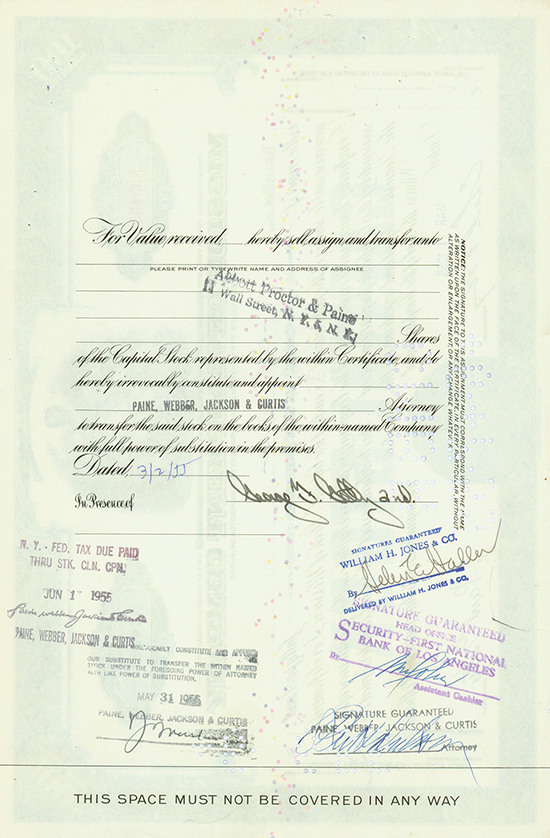 For Value received, hereby sell, assign and transfer unto
PLEASE PRINT OR TYPEWRITE NAME AND ADDRESS OF ASSIGNEE
Abbott Proctor & Paine
Wall Street, N. Y. 5, N. Y.
Shares
of the Capital Stock represented by the within Certificate, and do
hereby irrevocably constitute and appoint
PAINE, WEBBER, JACKSON & CURTIS Attorney
to transfer the said stock on the books of the within-named Company
with full power of substitution in the premises.
Dated, 3/2/55
George F. Getty 2nd.
In Presence of
NOTICE: THE SIGNATURE TO THIS ASSIGNMENT MUST CORRESPOND WITH THE NAME
AS WRITTEN UPON THE FACE OF THE CERTIFICATE, IN EVERY PARTICULAR, WITHOUT
ALTERATION OR ENLARGEMENT, OR ANY CHANGE WHATEVER.
SIGNATURES GUARANTEED
WILLIAM H. JONES & CO.
By Helen E. Haller
DELIVERED BY WILLIAM H. JONES & CO.
N. Y. - FED. TAX DUE PAID
THRU STK. CLN. CPN.
JUN 1 1955
Paine Webber Jackson & Curtis
PAINE, WEBBER, JACKSON & CURTIS
IRREVOCABLY CONSTITUTE AND APPOINT
OUR SUBSTITUTE TO TRANSFER THE WITHIN NAMED
STOCK UNDER THE FOREGOING POWER OF ATTORNEY
WITH LIKE POWER OF SUBSTITUTION.
MAY 31 1955
PAINE, WEBBER, JACKSON & CURTIS
SIGNATURE GUARANTEED
HEAD OFFICE
SECURITY-FIRST NATIONAL
BANK OF LOS ANGELES
By
Assistant Cashier
SIGNATURE GUARANTEED
PAINE, WEBBER, JACKSON & CURTIS
Attorney
THIS SPACE MUST NOT BE COVERED IN ANY WAY